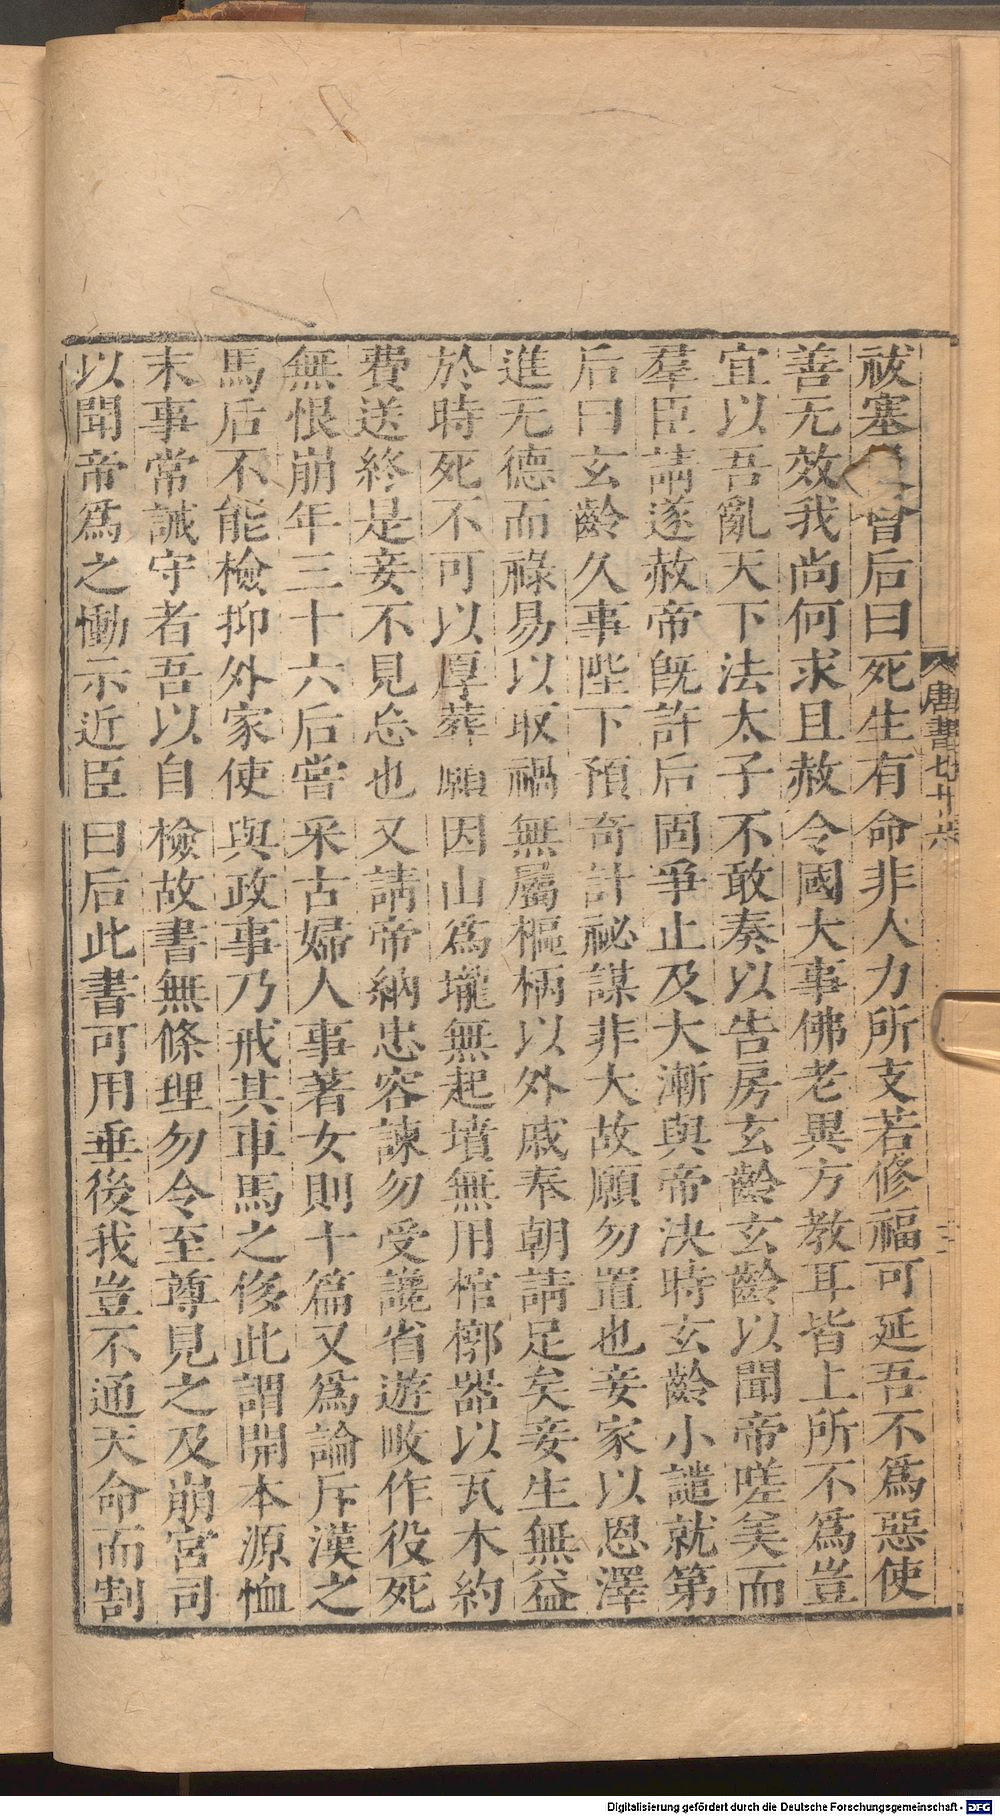 唐書七十六
祓塞會后曰死生有命非人力所支若修福可延吾不爲惡使
善无效我尚何求且赦令國大事佛老異方教耳皆上所不爲豈
宜以吾亂天下法太子不敢奏以告房玄齡玄齡以聞帝嗟美而
羣臣請遂赦帝旣許后固爭止及大漸與帝決時玄齡小譴就第
后曰玄齡久事陛下預奇計祕謀非大故願勿置也妾家以恩澤
進无德而祿易以取禍無屬樞柄以外戚奉朝請足矣妾生無益
於時死不可以厚葬願因山爲壠無起墳無用棺槨器以瓦木約
費送終是妾不見忘也又請帝納忠容諫勿受讒省遊畋作役死
無恨崩年三十六后嘗采古婦人事著女則十篇又爲論斥漢之
馬后不能檢抑外家使與政事乃戒其車馬之侈此謂開本源恤
末事常誡守者吾以自檢故書無條理勿令至尊見之及崩宮司
以聞帝爲之慟示近臣曰后此書可用垂後我豈不通天命而割
Digitalisierung gefördert durch die Deutsche Forschungsgemeinschaft - DFG